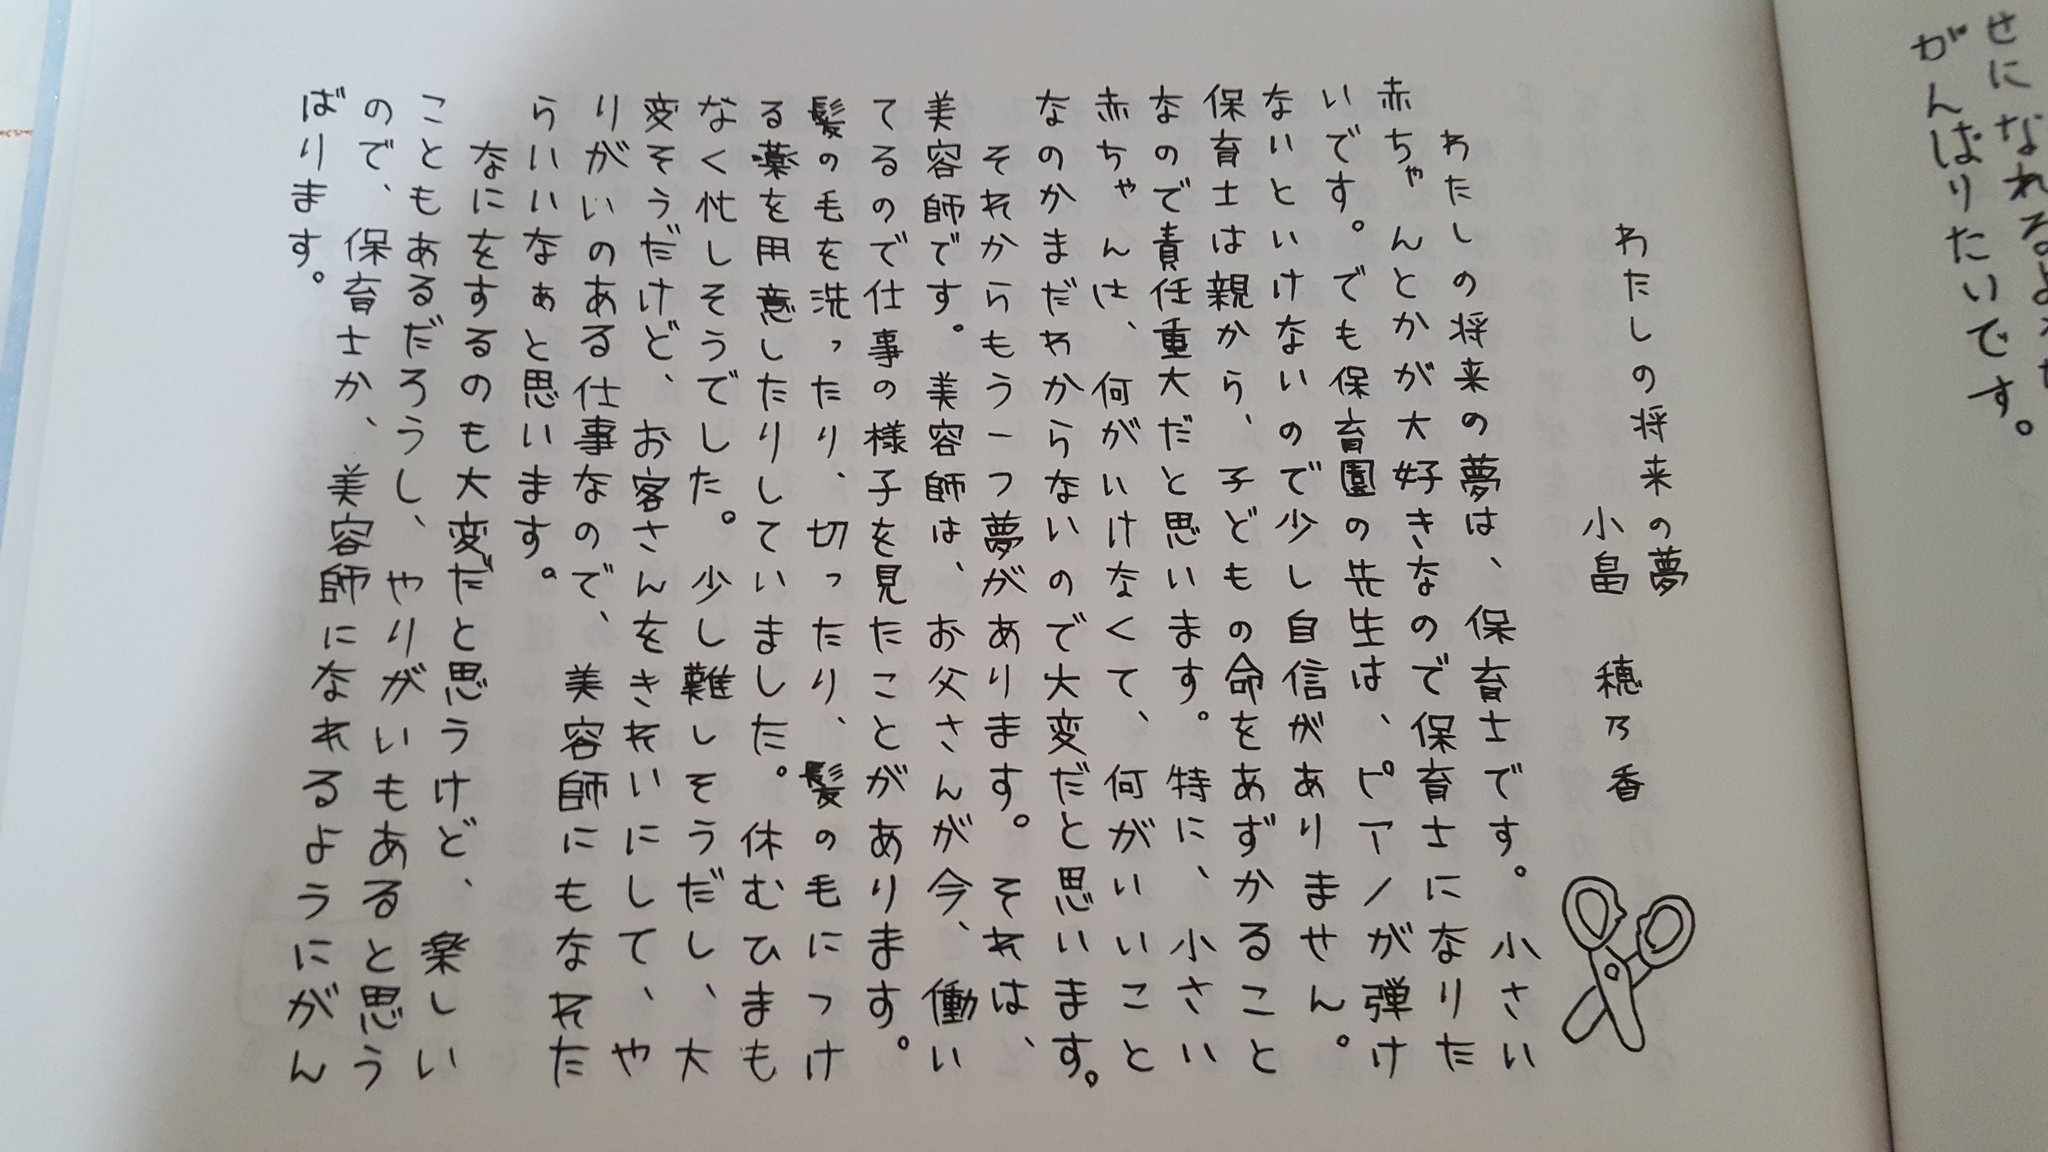 せになれるよう
がんばりたいです。
わたしの将来の夢
小畠 穂乃香
わたしの将来の夢は、保育士です。小さい
赤ちゃんとかが大好きなので保育士になりた
いです。でも保育園の先生は、ピアノが弾け
ないといけないので少し自信がありません。
保育士は親から、子どもの命をあずかること
なので責任重大だと思います。特に、小さい
赤ちゃんは、何がいけなくて、何がいいこと
なのかまだわからないので大変だと思います。
それからもう一つ夢があります。それは、
美容師です。美容師は、お父さんが今、働い
てるので仕事の様子を見たことがあります。
髪の毛を洗ったり、切ったり、髪の毛につけ
る薬を用意したりしていました。休むひまも
なく忙しそうでした。少し難しそうだし、大
変そうだけど、お客さんをきれいにして、や
りがいのある仕事なので、美容師にもなれた
らいいなぁと思います。
なにをするのも大変だと思うけど、楽しい
こともあるだろうし、やりがいもあると思う
ので、保育士か、美容師になれるようにがん
ばります。